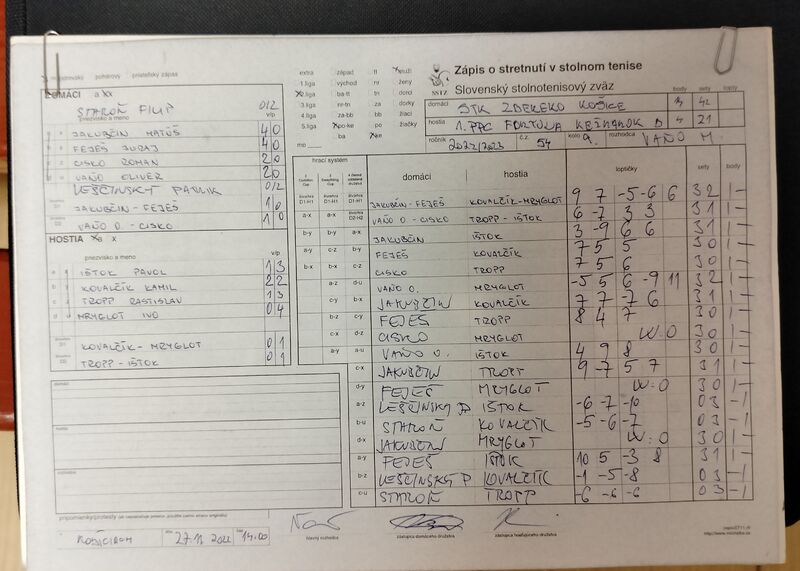 majstrovsko pohárový priateľský zápas
DOMÁCI a x
STAROŇ FILIP 0/2
priezvisko a meno v/p
JAKUBČIN MATÚŠ 4 0
FEJEŠ JURAJ 4 0
CISKO ROMAN 2 0
VAŇO OLIVER 2 0
LEŠČINSKÝ PATRIK 0/2
JAKUBČIN - FEJEŠ 1 0
VAŇO O. - CISKO 1 0
HOSTIA a x
priezvisko a meno v/p
IŠTOK PAVOL 1 3
KOVALČÍK KAMIL 2 2
TROPP RASTISLAV 1 3
MRYGLOT IVO 0 4
KOVALČÍK - MRYGLOT 0 1
TROPP - IŠTOK 0 1
domáci
hostia
rozhodca
pripomienky/protesty
27.11.2022 14.00
extra západ tt muži
1.liga východ nr ženy
2.liga ba-tt tn dorci
3.liga nr-tn za dorky
4.liga za-bb bb žiaci
5.liga po-ke po žiačky
mo ba ke
SSTZ
Zápis o stretnutí v stolnom tenise
Slovenský stolnotenisový zväz
body sety lopty
domáci STK ZDEREKO KOŠICE 42
hostia 1. PPC FORTUNA KEŽMAROK B 4 21
ročník 2022/2023 č.z. 54 kolo 9. rozhodca VAŇO M.
hrací systém domáci hostia loptičky sety body
JAKUBČIN - FEJEŠ KOVALČÍK-MRYGLOT 9 7 -5 -6 6 3 2 1 -
a-x VAŇO O. - CISKO TROPP - IŠTOK 6 -7 3 3 3 1 1 -
b-y a-x JAKUBČIN IŠTOK 3 -9 6 6 3 1 1 -
a-y c-z b-y FEJEŠ KOVALČÍK 7 5 5 3 0 1 -
b-x b-x c-z CISKO TROPP 7 5 6 3 0 1 -
a-z d-u VAŇO O. MRYGLOT -5 5 6 -9 11 3 2 1 -
c-y b-x JAKUBČIN KOVALČÍK 7 7 -7 6 3 1 1 -
b-z c-y FEJEŠ TROPP 8 4 7 3 0 1 -
c-x d-z CISKO MRYGLOT W:O 3 0 1 -
a-y a-u VAŇO O. IŠTOK 4 9 8 3 0 1 -
c-x JAKUBČIN TROPP 9 -7 5 7 3 1 1 -
d-y FEJEŠ MRYGLOT W:O 3 0 1 -
a-z LEŠČINSKÝ P IŠTOK -6 -7 -10 0 3 - 1
b-u STAROŇ KOVALČÍK -5 -6 -7 0 3 - 1
d-x JAKUBČIN MRYGLOT W:O 3 0 1 -
a-y FEJEŠ IŠTOK 10 5 -3 8 3 1 1 -
b-z LEŠČINSKÝ P KOVALČÍK -1 -5 -8 0 3 - 1
c-u STAROŇ TROPP -6 -6 -6 0 3 - 1
hlavný rozhodca zástupca domáceho družstva zástupca hosťujúceho družstva